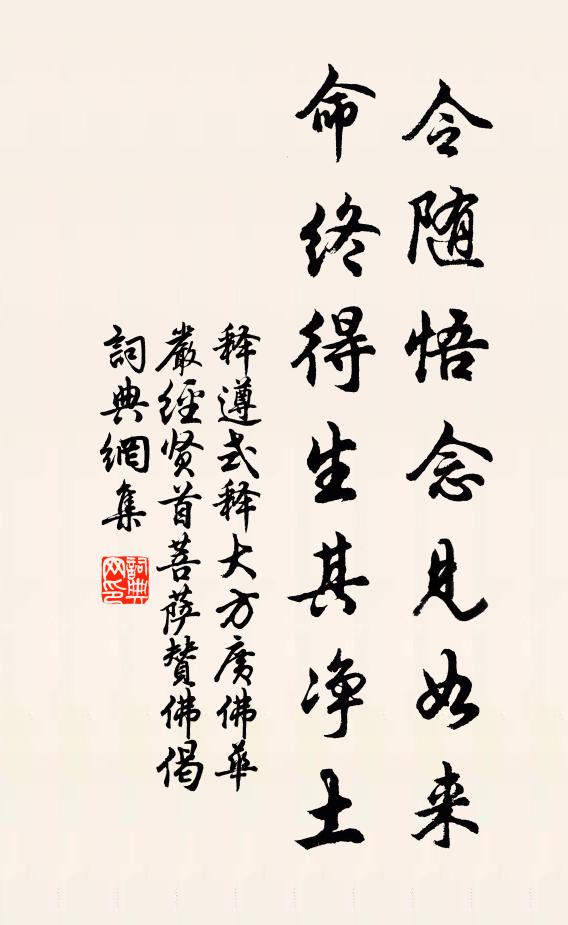 令随悟念见如来
命终得生其净土
释遵式释大方广佛华
严经贤首菩萨赞佛偈
词典網集
詞典
网印